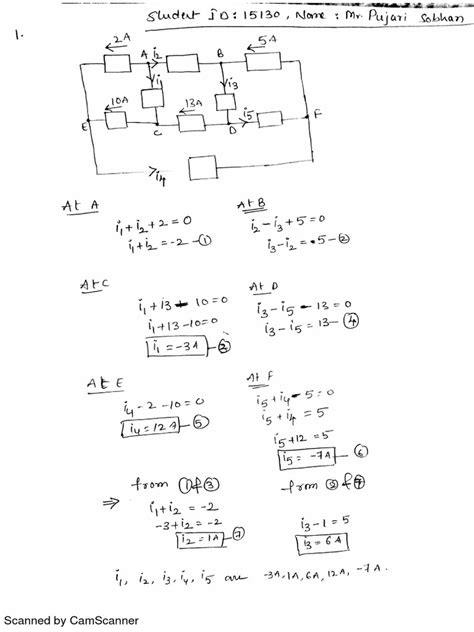 Student iD: 15130, Name: Mr. Pujari Sobhan
1.
2A
A
i2
B
5A
i1
i3
10A
13A
i5
E
C
D
F
i4
At A
i1 + i2 + 2 = 0
i1 + i2 = -2 - ①
At B
i2 - i3 + 5 = 0
i3 - i2 = 5 - ②
At C
i1 + 13 - 10 = 0
i1 + 13 - 10 = 0
i1 = -3A - ③
At D
i3 - i5 - 13 = 0
i3 - i5 = 13 - ④
At E
i4 - 2 - 10 = 0
i4 = 12 A - ⑤
At F
i5 + i4 - 5 = 0
i5 + i4 = 5
i5 + 12 = 5
i5 = -7A - ⑥
from ① & ③
⇒ i1 + i2 = -2
-3 + i2 = -2
i2 = 1A - ⑦
from ② & ⑦
i3 - 1 = 5
i3 = 6A
i1, i2, i3, i4, i5 are -3A, 1A, 6A, 12A, -7A.
Scanned by CamScanner